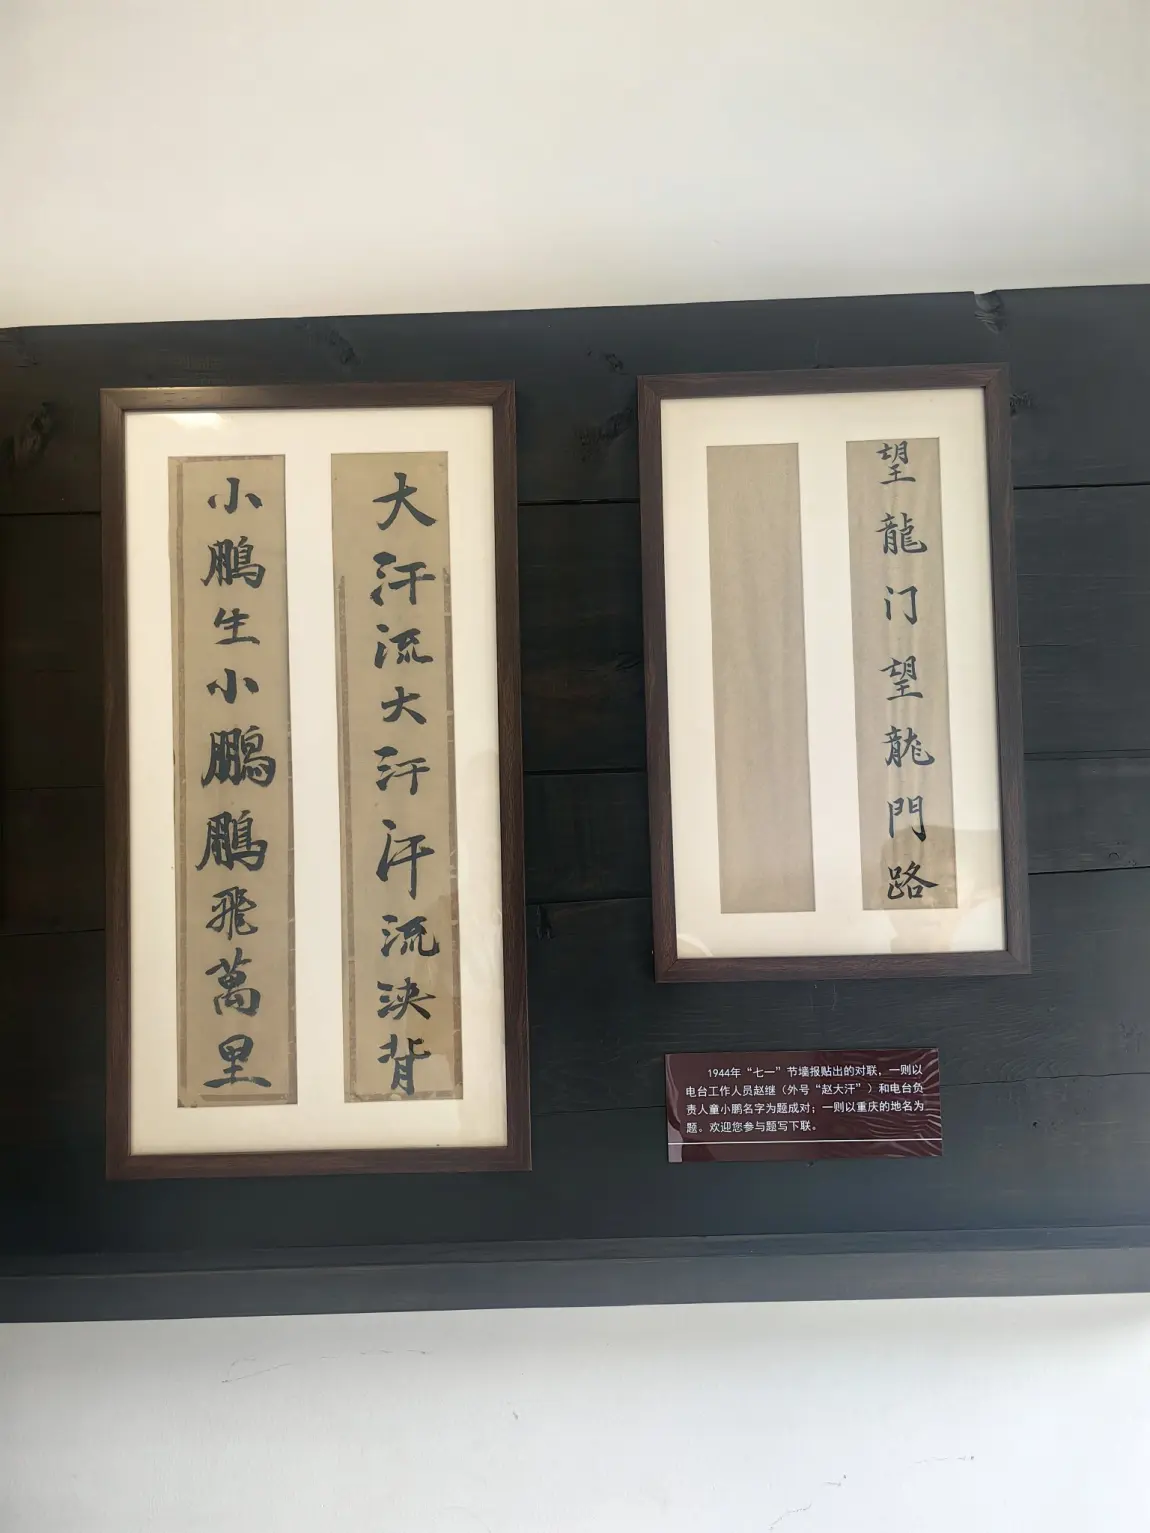 大汗流大汗汗流浃背
小鵬生小鵬鵬飛萬里
望龍门望龍門路
1944年“七一”节墙报贴出的对联，一则以
电台工作人员赵继（外号“赵大汗”）和电台负
责人童小鹏名字为题成对；一则以重庆的地名为
题。欢迎您参与题写下联。